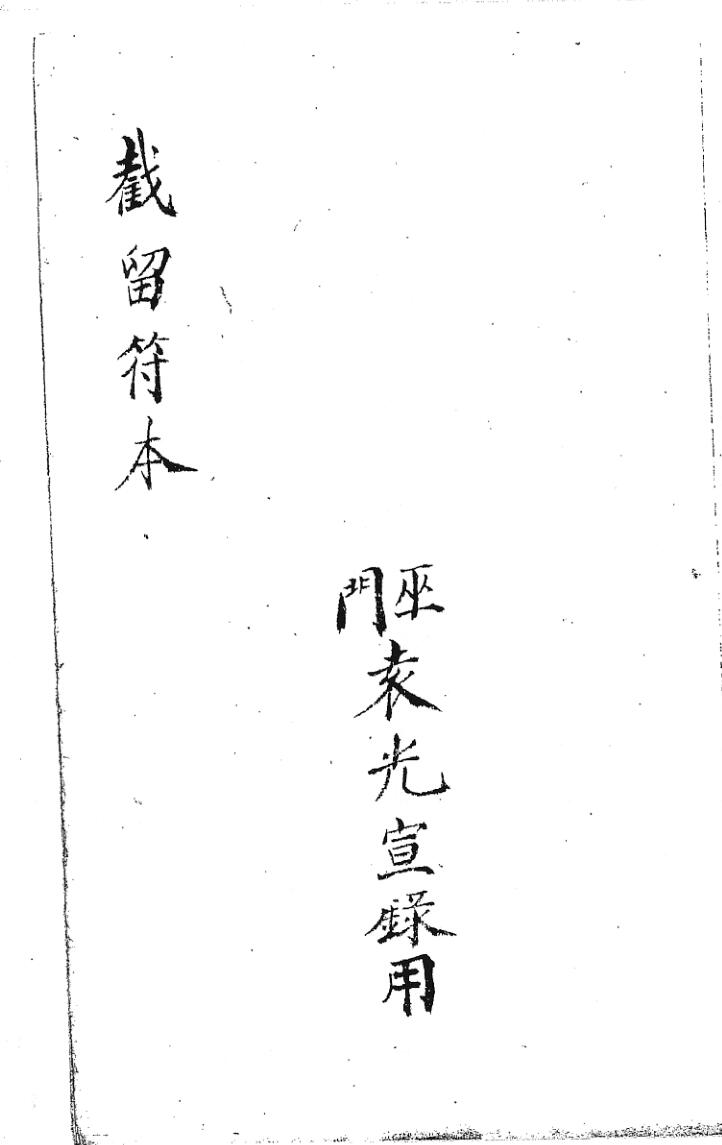 巫門袁光宣錄用
截留符本